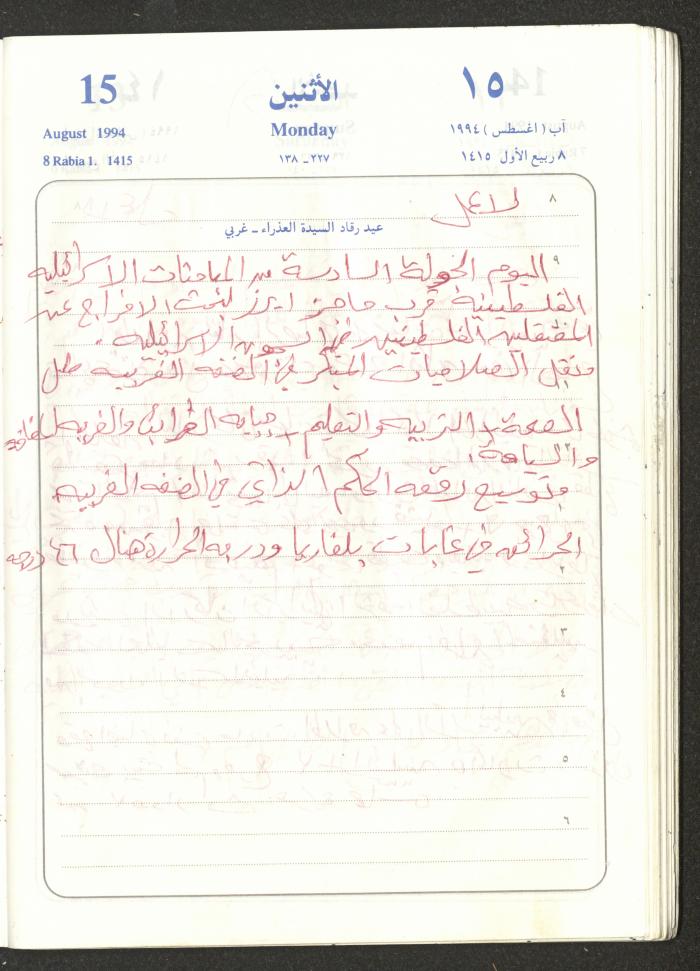 15 الأثنين ١٥
August 1994 Monday آب (اغسطس) ١٩٩٤
8 Rabia 1. 1415 ٢٢٧ - ١٣٨ ٨ ربيع الأول ١٤١٥
٨ لا عمل
عيد رقاد السيدة العذراء - غربي
٩ اليوم الجولة السادسة من المباحثات الاسرائيلية
الفلسطينية قرب حاجز ايرز لبحث الافراج عن
المعتقلين الفلسطينيين في السجون الاسرائيلية .
ونقل الصلاحيات المبكر في الضفه الغربيه مثل
الصحة والتربيه والتعليم جبايه الضرائب والضريبه المضافه
والسياحة .
وتوسيع رقعه الحكم الذاتي في الضفه الغربيه
الحرائق في غابات بلغاريا ودرجه الحرارة هناك ٤٦ درجه
٢
٣
٤
٥
٦